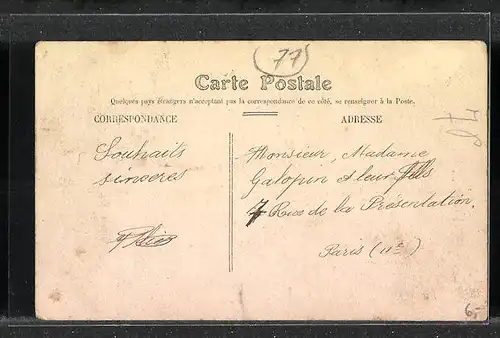 77
Carte Postale
Quelques pays étrangers n'acceptant pas la correspondance de ce côté, se renseigner à la Poste.
CORRESPONDANCE
ADRESSE
Souhaits
sincères
Monsieur, Madame
Galopin et leur fils
7 Rue de la Présentation,
Paris (11e)
6,-